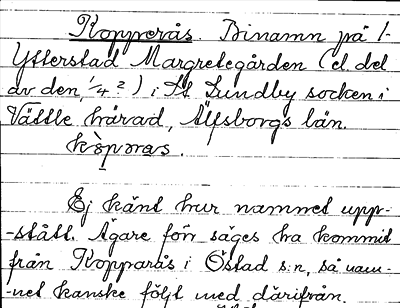 Kopperås. Binamn på 1-
Ytterstad Margretegården (el. del
av den, 1/4 2) i St. Lundby socken i
Vättle härad, Älfsborgs län.
Ej känt hur namnet upp-
-stått. Ägare förr säges ha kommit
från Kopparås i Östad s:n, så nam-
-net kanske följt med därifrån.